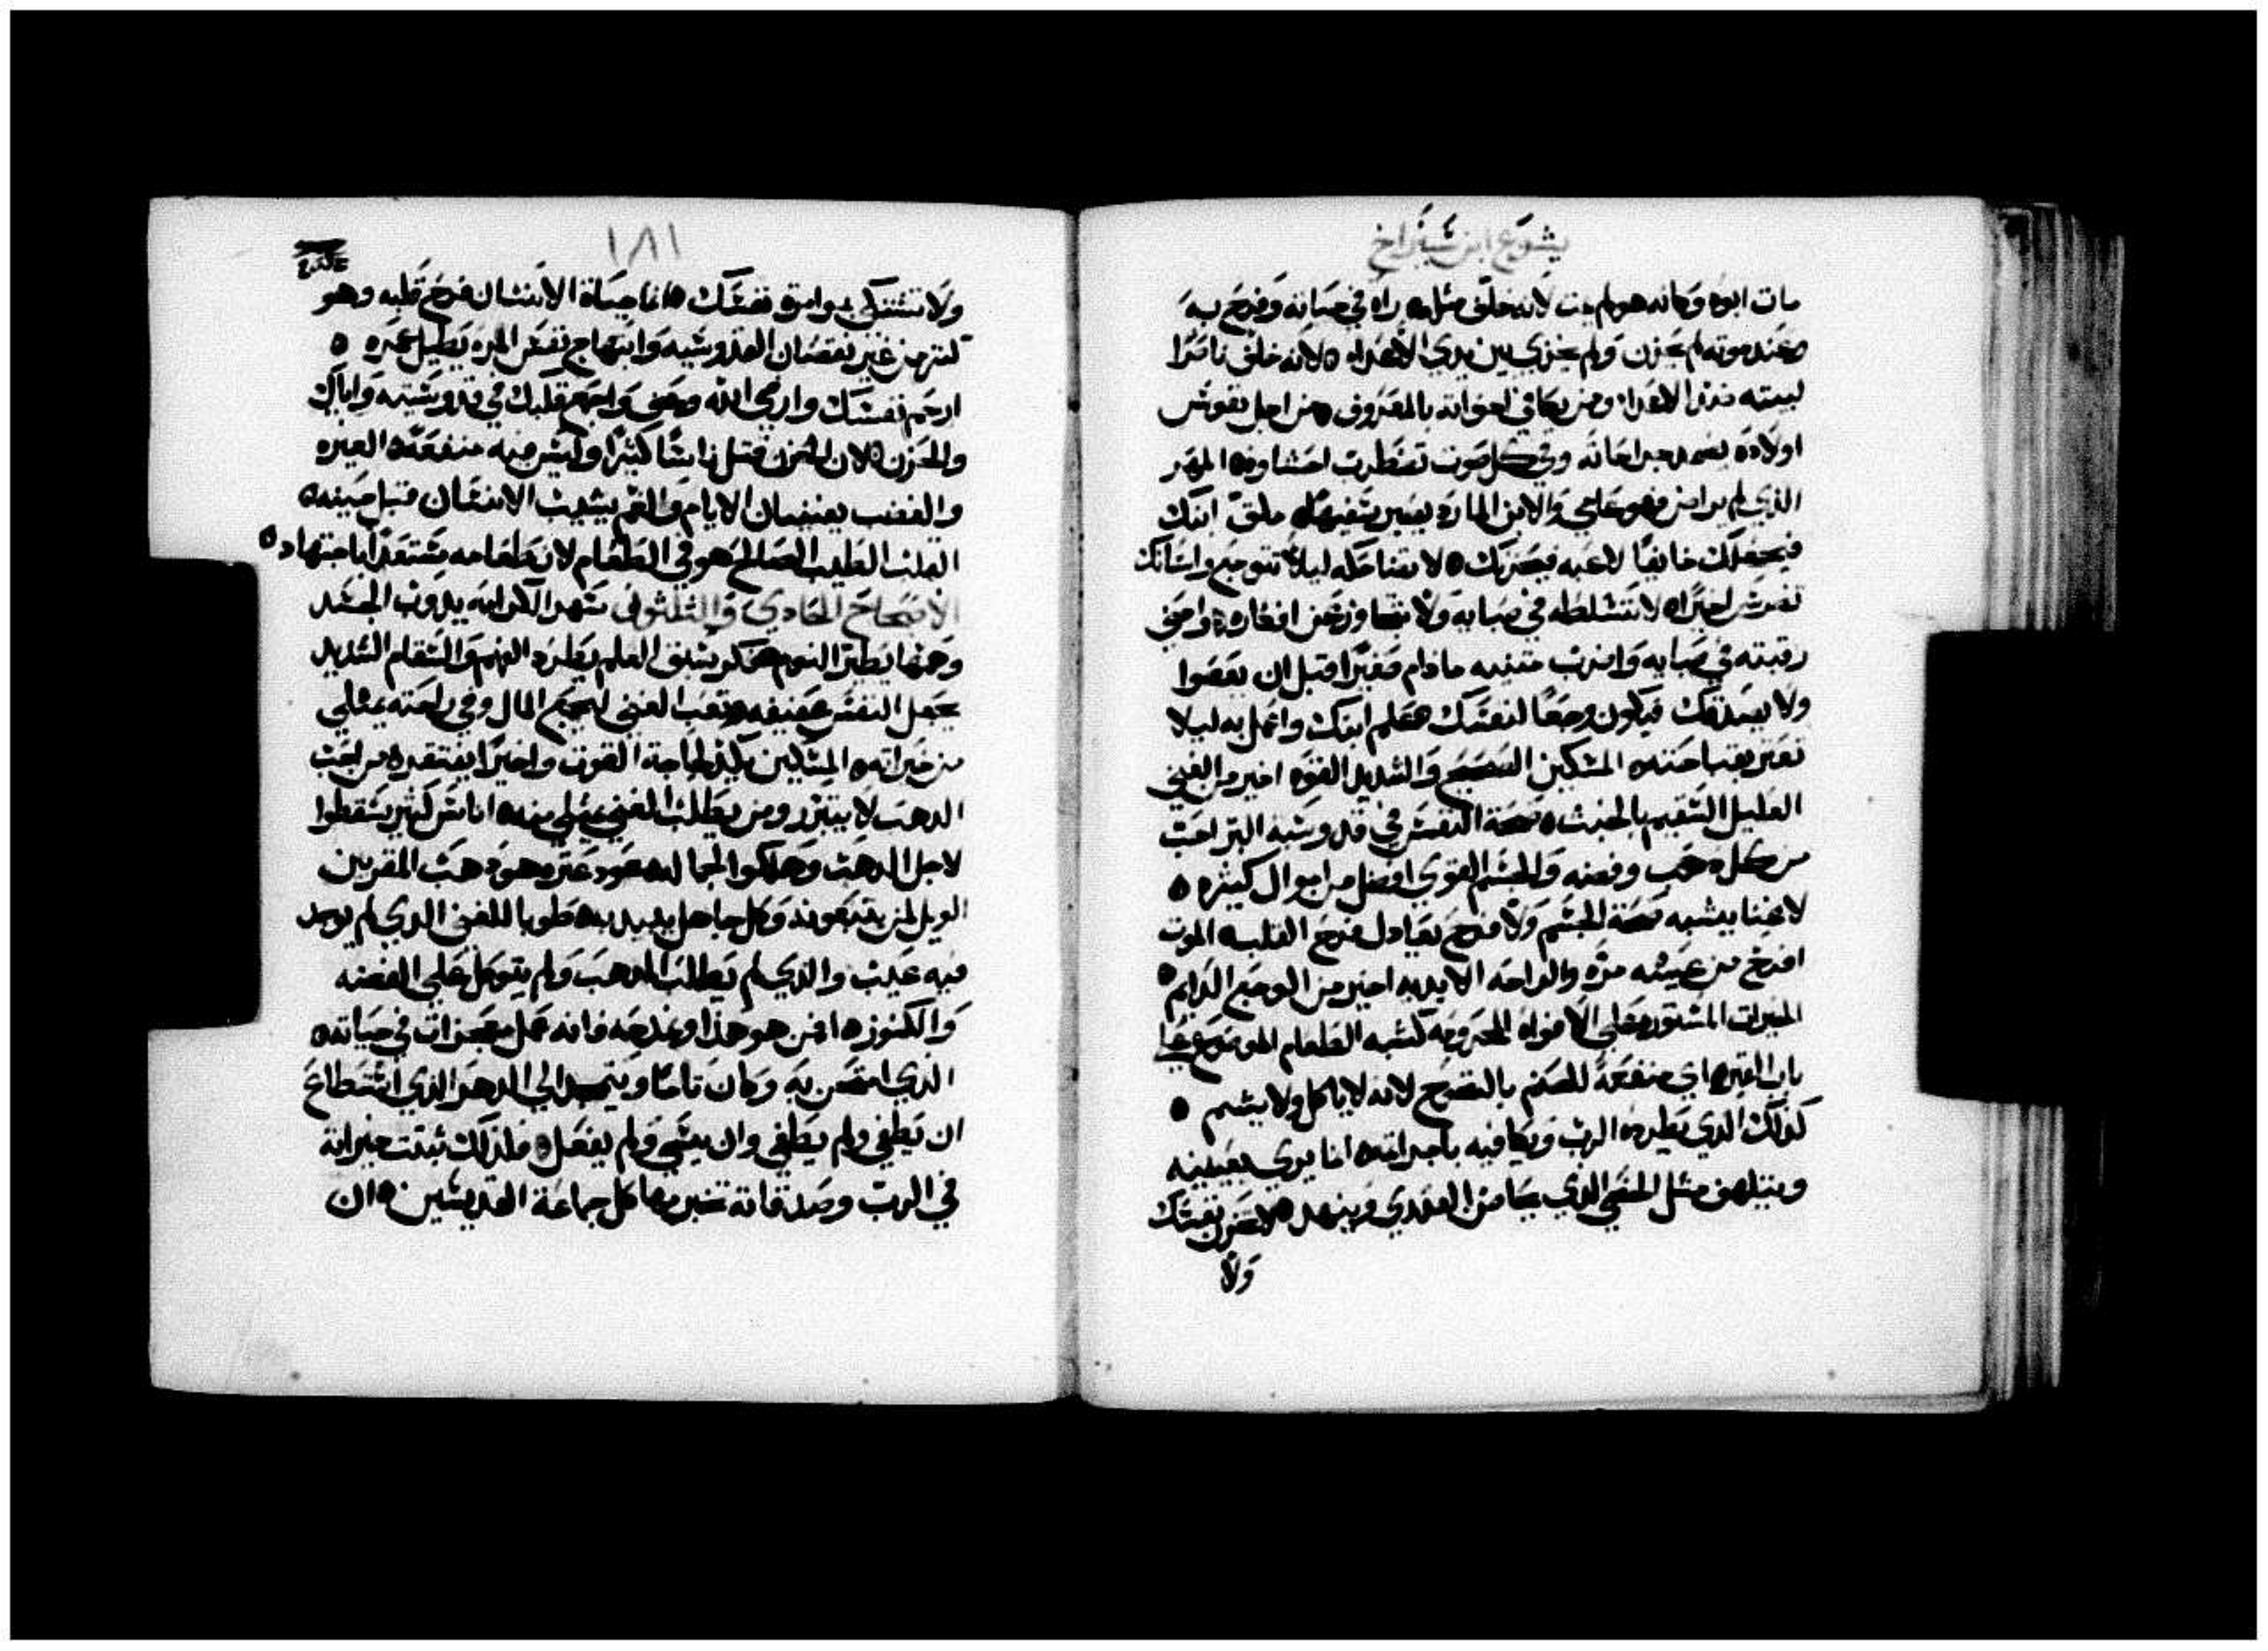 يشوع ابن شيراخ
مات ابوه وكانه هو لم يمت لانه خلق مثله راه في حياته وفرح به
وعند موته لم يحزن ولم يخزي بين يدي الاعداه لانه خلف ناصرا
لبيته ضد الاعدا ومن يكافي اخوانه بالمعروف من اجل نفوس
اولاده يضمد جراحاته وفي كل صوت تضطرب احشاوه المهر
الذي لم يراض فهو عاصي والابن المارد يصير سفيها ملق ابنك
فيجعلك خايفا لاعبه فيحزنك لا تضاحكه ليلا تتوجع واسنانك
تضرس اخيرا لا تسلطه في صبايه ولا تتهاون عن افكاره واحني
رقبته في صبايه واضرب جنبيه ما دام صغيرا قبل ان يقصوا
ولا يصدقك فيكون وجعا لنفسك علم ابنك واعمل به ليلا
تعثر بقباحته المسكين الصحيح والشديد القوه اخير من الغني
العليل السقيم بالخبث صحة النفس في قدوسية البر احب
من كل دهب وفضه والجسم القوي افضل من اموال كثيره
لا غنا يشبه صحة الجسم ولا فرح يعادل فرح القلب الموت
افرح من عيشه مره والراحه الابديه اخير من الوجع الدايم
الخيرات المستوره على الافواه المحرومه كشبه الطعام الموضوع على
باب القبر اي منفعة للصنم بالنضوح لانه لا ياكل ولا يشم
كذلك الذي يطرده الرب ويكافيه باجراته انما يري بعينيه
ويتلهف مثل الخصي الذي يجامع العدري ويتنهد لا تحزن نفسك
ولا
١٨١
ولا تشتكي بوامق نفسك انما حياة الانسان فرح قلبه وهو
كنز من غير نقصان القدوسيه وابتهاج نفس المره يطيل عمره
ارحم نفسك وارضي الله وصفي واجمع قلبك في قدوسيته واياك
والحزن لان الحزن قتل ناسا كثيرا وليس فيه منفعة الغيره
والغضب ينقصان الايام والغم يشيب الانسان قبل حينه
القلب الطيب الصالح هو في الطعام لان طعامه مستعدا باجتهاد
الاصحاح الحادي والثلثون سهر الكرامه يدوب الجسد
وهمها يطير النوم فكر سبق العلم يطرد الفهم والسقام الشديد
يجعل النفس عفيفه تعب الغني لجمع المال وفي راحته يمتلي
من خيراته المسكين يكد لحاجة القوت واخيرا يفتقد من احب
الدهب لا يتبرر ومن يطلب الغني يمتلي منه اناس كثير سقطوا
لاجل الدهب وهلكوا لجماله عود عتر وهو دهب المقربين
الويل لمن يتبعونه وكل جاهل يبيد به طوبا للغني الذي لم يوجد
فيه عيب والذي لم يطلب الدهب ولم يتوكل على الفضه
والكنوز من هو هذا ونمدحه فانه عمل معجزات في حياته
الذي امتحن به وكان تاما ويتمجد الي الدهر الذي استطاع
ان يطغي ولم يطغي وان يسي ولم يفعل فلذلك ثبتت خيراته
في الرب وصدقاته تخبر بها كل جماعة القديسين ان